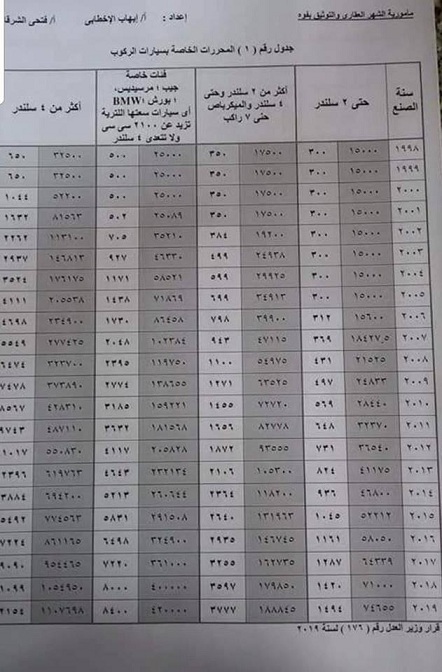 مأمورية الشهر العقارى والتوثيق بفوه إعداد : أ/ إيهاب الإخطابى أ/ فتحى الشرقا
جدول رقم ( ١ ) المحررات الخاصة بسيارات الركوب
سنة الصنع حتى ٢ سلندر أكثر من ٢ سلندر وحتى ٤ سلندر والميكرباص حتى ٧ راكب فئات خاصة جيب ١ مرسيدس، ١ بورش ١ BMW أى سيارات سعتها اللترية تزيد عن ٢١٠٠ سى سى ولا تتعدى ٤ سلندر أكثر من ٤ سلندر
١٩٩٨ ١٥٠٠٠ ٣٠٠ ١٧٥٠٠ ٣٥٠ ٢٥٠٠٠ ٥٠٠ ٣٢٥٠٠ ٦٥٠
١٩٩٩ ١٥٠٠٠ ٣٠٠ ١٧٥٠٠ ٣٥٠ ٢٥٠٠٠ ٥٠٠ ٣٢٥٠٠ ٦٥٠
٢٠٠٠ ١٥٠٠٠ ٣٠٠ ١٧٥٠٠ ٣٥٠ ٢٥٠٠٠ ٥٠٠ ٥٢٢٠٠ ١٠٤٤
٢٠٠١ ١٥٠٠٠ ٣٠٠ ١٧٥٠٠ ٣٥٠ ٢٥٠٨٩ ٥٠٢ ٨١٥٦٣ ١٦٣٢
٢٠٠٢ ١٥٠٠٠ ٣٠٠ ١٩٢٠٠ ٣٨٤ ٣٥٢١٠ ٧٠٥ ١١٣١٠٠ ٢٢٦٢
٢٠٠٣ ١٥٠٠٠ ٣٠٠ ٢٤٩٣٨ ٤٩٩ ٤٦٣٣٠ ٩٢٧ ١٤٦٨١٣ ٢٩٣٧
٢٠٠٤ ١٥٠٠٠ ٣٠٠ ٢٩٩٢٥ ٥٩٩ ٥٨٥٢١ ١١٧١ ١٧٦١٧٥ ٣٥٢٤
٢٠٠٥ ١٥٠٠٠ ٣٠٠ ٣٤٩١٣ ٦٩٩ ٧١٨٦٩ ١٤٣٨ ٢٠٥٥٣٨ ٤١١١
٢٠٠٦ ١٥٦٠٠ ٣١٢ ٣٩٩٠٠ ٧٩٨ ٨٦٤٥٨ ١٧٣٠ ٢٣٤٩٠٠ ٤٦٩٨
٢٠٠٧ ١٨٤٢٧,٥ ٣٦٩ ٤٧١١٥ ٩٤٣ ١٠٢٣٨٤ ٢٠٤٨ ٢٧٧٤٢٥ ٥٥٤٩
٢٠٠٨ ٢١٥٢٥ ٤٣١ ٥٤٩٧٥ ١١٠٠ ١١٩٧٥٠ ٢٣٩٥ ٣٢٣٧٠٠ ٦٤٧٤
٢٠٠٩ ٢٤٨٣٣ ٤٩٧ ٦٣٥٢٥ ١٢٧١ ١٣٨٦٥٥ ٢٧٧٤ ٣٧٣٨٩٠ ٧٤٧٨
٢٠١٠ ٢٨٤٤٠ ٥٦٩ ٧٢٧٢٠ ١٤٥٥ ١٥٩٢٢١ ٣١٨٥ ٤٢٨٣١٠ ٨٥٦٧
٢٠١١ ٣٢٣٧٠ ٦٤٨ ٨٢٧٧٨ ١٦٥٦ ١٨١٥٦٨ ٣٦٣٢ ٤٨٧١١٠ ٩٧٤٣
٢٠١٢ ٣٦٥٤٠ ٧٣١ ٩٣٥٥٥ ١٨٧٢ ٢٠٥٨٢٨ ٤١١٧ ٥٥٠٨٣٠ ١٠١٧
٢٠١٣ ٤١١٧٥ ٨٢٤ ١٠٥٣٠٠ ٢١٠٦ ٢٣٢١٣٤ ٤٦٤٣ ٦١٩٧٦٣ ٢٣٩٦
٢٠١٤ ٤٦٨٠٠ ٩٣٦ ١١٨٢٠٠ ٢٣٦٤ ٢٦٠٦٤٤ ٥٢١٣ ٦٩٤٢٠٠ ٣٨٨٤
٢٠١٥ ٥٢٢١٢ ١٠٤٥ ١٣١٩٦٣ ٢٦٤٠ ٢٩١٥٠٨ ٥٨٣١ ٧٧٤٥٦٣ ٥٤٩٢
٢٠١٦ ٥٨٠٥٠ ١١٦١ ١٤٦٧٤٥ ٢٩٣٥ ٣٢٤٩٠٠ ٦٤٩٨ ٨٦١١٦٥ ٧٢٢٤
٢٠١٧ ٦٤٣٣٩ ١٢٨٧ ١٦٢٧٣٥ ٣٢٥٥ ٣٦١٠٠٠ ٧٢٢٠ ٩٥٤٤٦٠ ٩٠٩٠
٢٠١٨ ٧١٠٠٠ ١٤٢٠ ١٧٩٨٥٠ ٣٥٩٧ ٤٠٠٠٠٠ ٨٠٠٠ ١٠٥٤٩٥٠ ١٠٩٩
٢٠١٩ ٧٤٦٥٥ ١٤٩٤ ١٨٨٨٤٥ ٣٧٧٧ ٤٢٠٠٠٠ ٨٤٠٠ ١١٠٧٦٩٨ ٢١٥٤
قرار وزير العدل رقم ( ١٧٦ ) لسنة ٢٠١٩